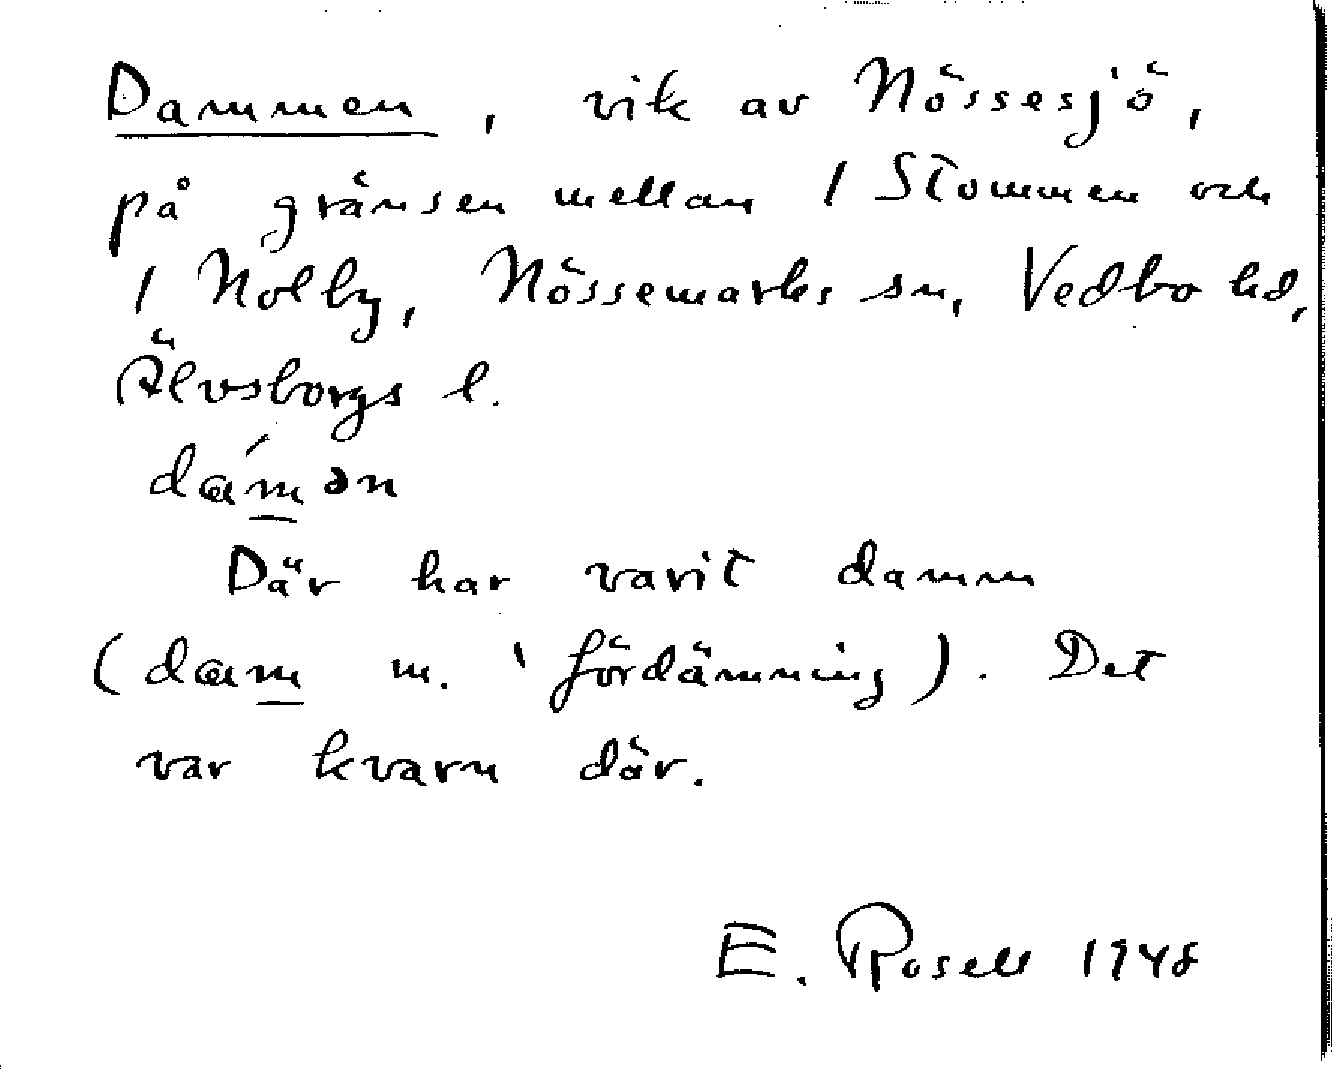 Dammen, vik av Nössesjö,
på gränsen mellan 1 Stommen och
1 Nolby, Nössemarks sn, Vedbo hd,
Älvsborgs l.
dám̲ən
Där har varit damm
(dam̲ m. 'fördämning). Det
var kvarn där.
E. Rosell 1948